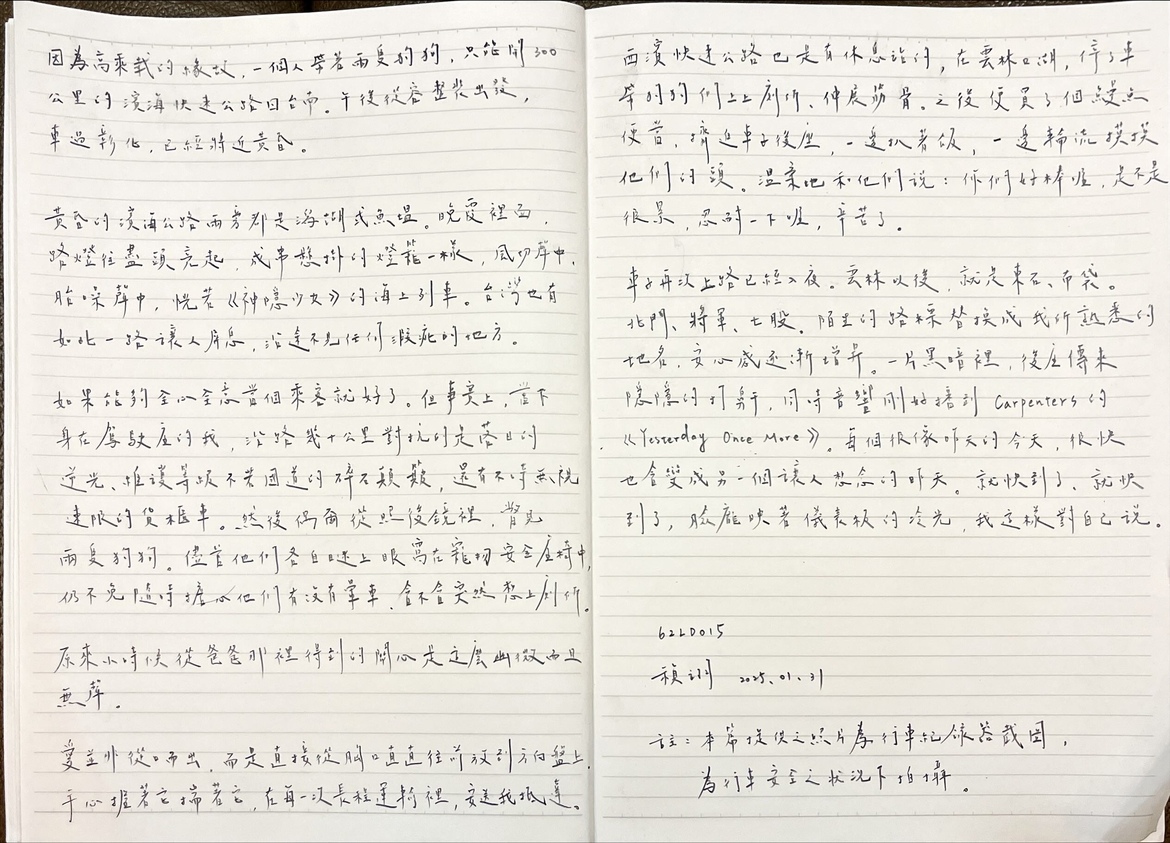 因為高乘載的緣故，一個人帶著兩隻狗狗，只能開300
公里的濱海快速公路回台南。午後從容整裝出發，
車過彰化，已經將近黃昏。
黃昏的濱海公路兩旁都是海湖或魚塭。晚霞裡面，
路燈從盡頭亮起，成串懸掛的燈籠一樣，風切聲中，
胎噪聲中，恍若《神隱少女》的海上列車。台灣也有
如此一路讓人屏息，沿途不見任何瑕疵的地方。
如果能夠全心全意當個乘客就好了。但事實上，當下
身在駕駛座的我，沿路幾十公里對抗的是落日的
逆光、維護等級不若國道的碎石顛簸，還有不時無視
速限的貨櫃車。然後偶爾從照後鏡裡，瞥見
兩隻狗狗。儘管他們各自瞇上眼窩在寵物安全座椅中，
仍不免隨時擔心他們有沒有暈車、會不會突然想上廁所。
原來小時候從爸爸那裡得到的關心是這麼幽微而且
無聲。
愛並非從口而出，而是直接從胸口直直往前放到方向盤上，
手心握著它揣著它，在每一次長程運輸裡，安送我抵達。
西濱快速公路也是有休息站的，在雲林口湖，停了車
帶狗狗們上上廁所、伸展筋骨。之後便買了個雙點
便當，擠進車子後座，一邊扒著飯，一邊輪流摸摸
他們的頭。溫柔地和他們說：你們好棒喔，是不是
很累，忍耐一下喔，辛苦了。
車子再次上路已經入夜。雲林以後，就是東石、布袋。
北門、將軍、七股。陌生的路標替換成我所熟悉的
地名，安心感逐漸增昇。一片黑暗裡，後座傳來
隱隱的打鼾，同時音響剛好播到 Carpenters 的
《Yesterday Once More》。每個很像昨天的今天，很快
也會變成另一個讓人想念的昨天。就快到了、就快
到了，臉龐映著儀表板的冷光，我這樣對自己說。
62LD015
禎翊 2025.01.31
註：本篇提供之照片為行車紀錄器截圖，
為行車安全之狀況下拍攝。